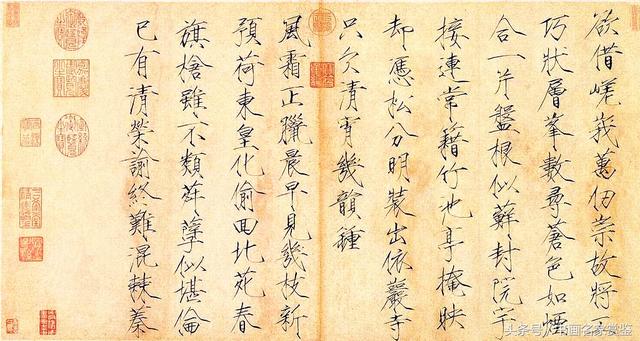 欲借嵯峩萬仞崇故將工
巧狀層峯數尋蒼色如煙
合一片盤根似蘚封院宇
接連常籍竹池亭掩映
却憑松分明裝出依巖寺
只欠清宵幾韻鍾
風霜正臘晨早見幾枝新
預荷東皇化偷回北苑春
旗槍雖不類孽似堪倫
已有清榮諭終難混棘蓁
头条号/中国名家赏鉴